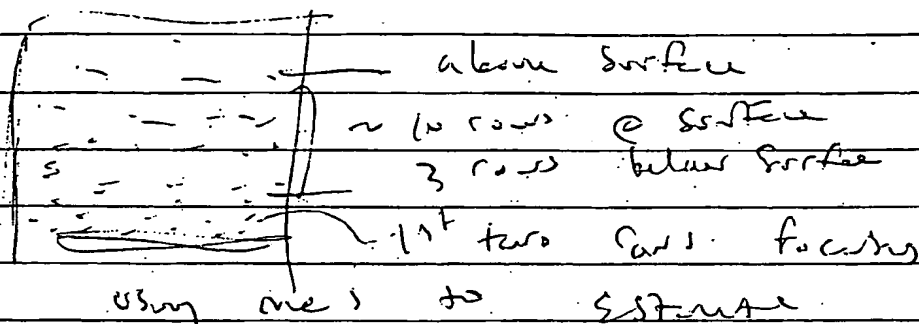 above surface
~ 10 rows @ surface
3 rows below surface
1st two rows focusing
using me s to estimate